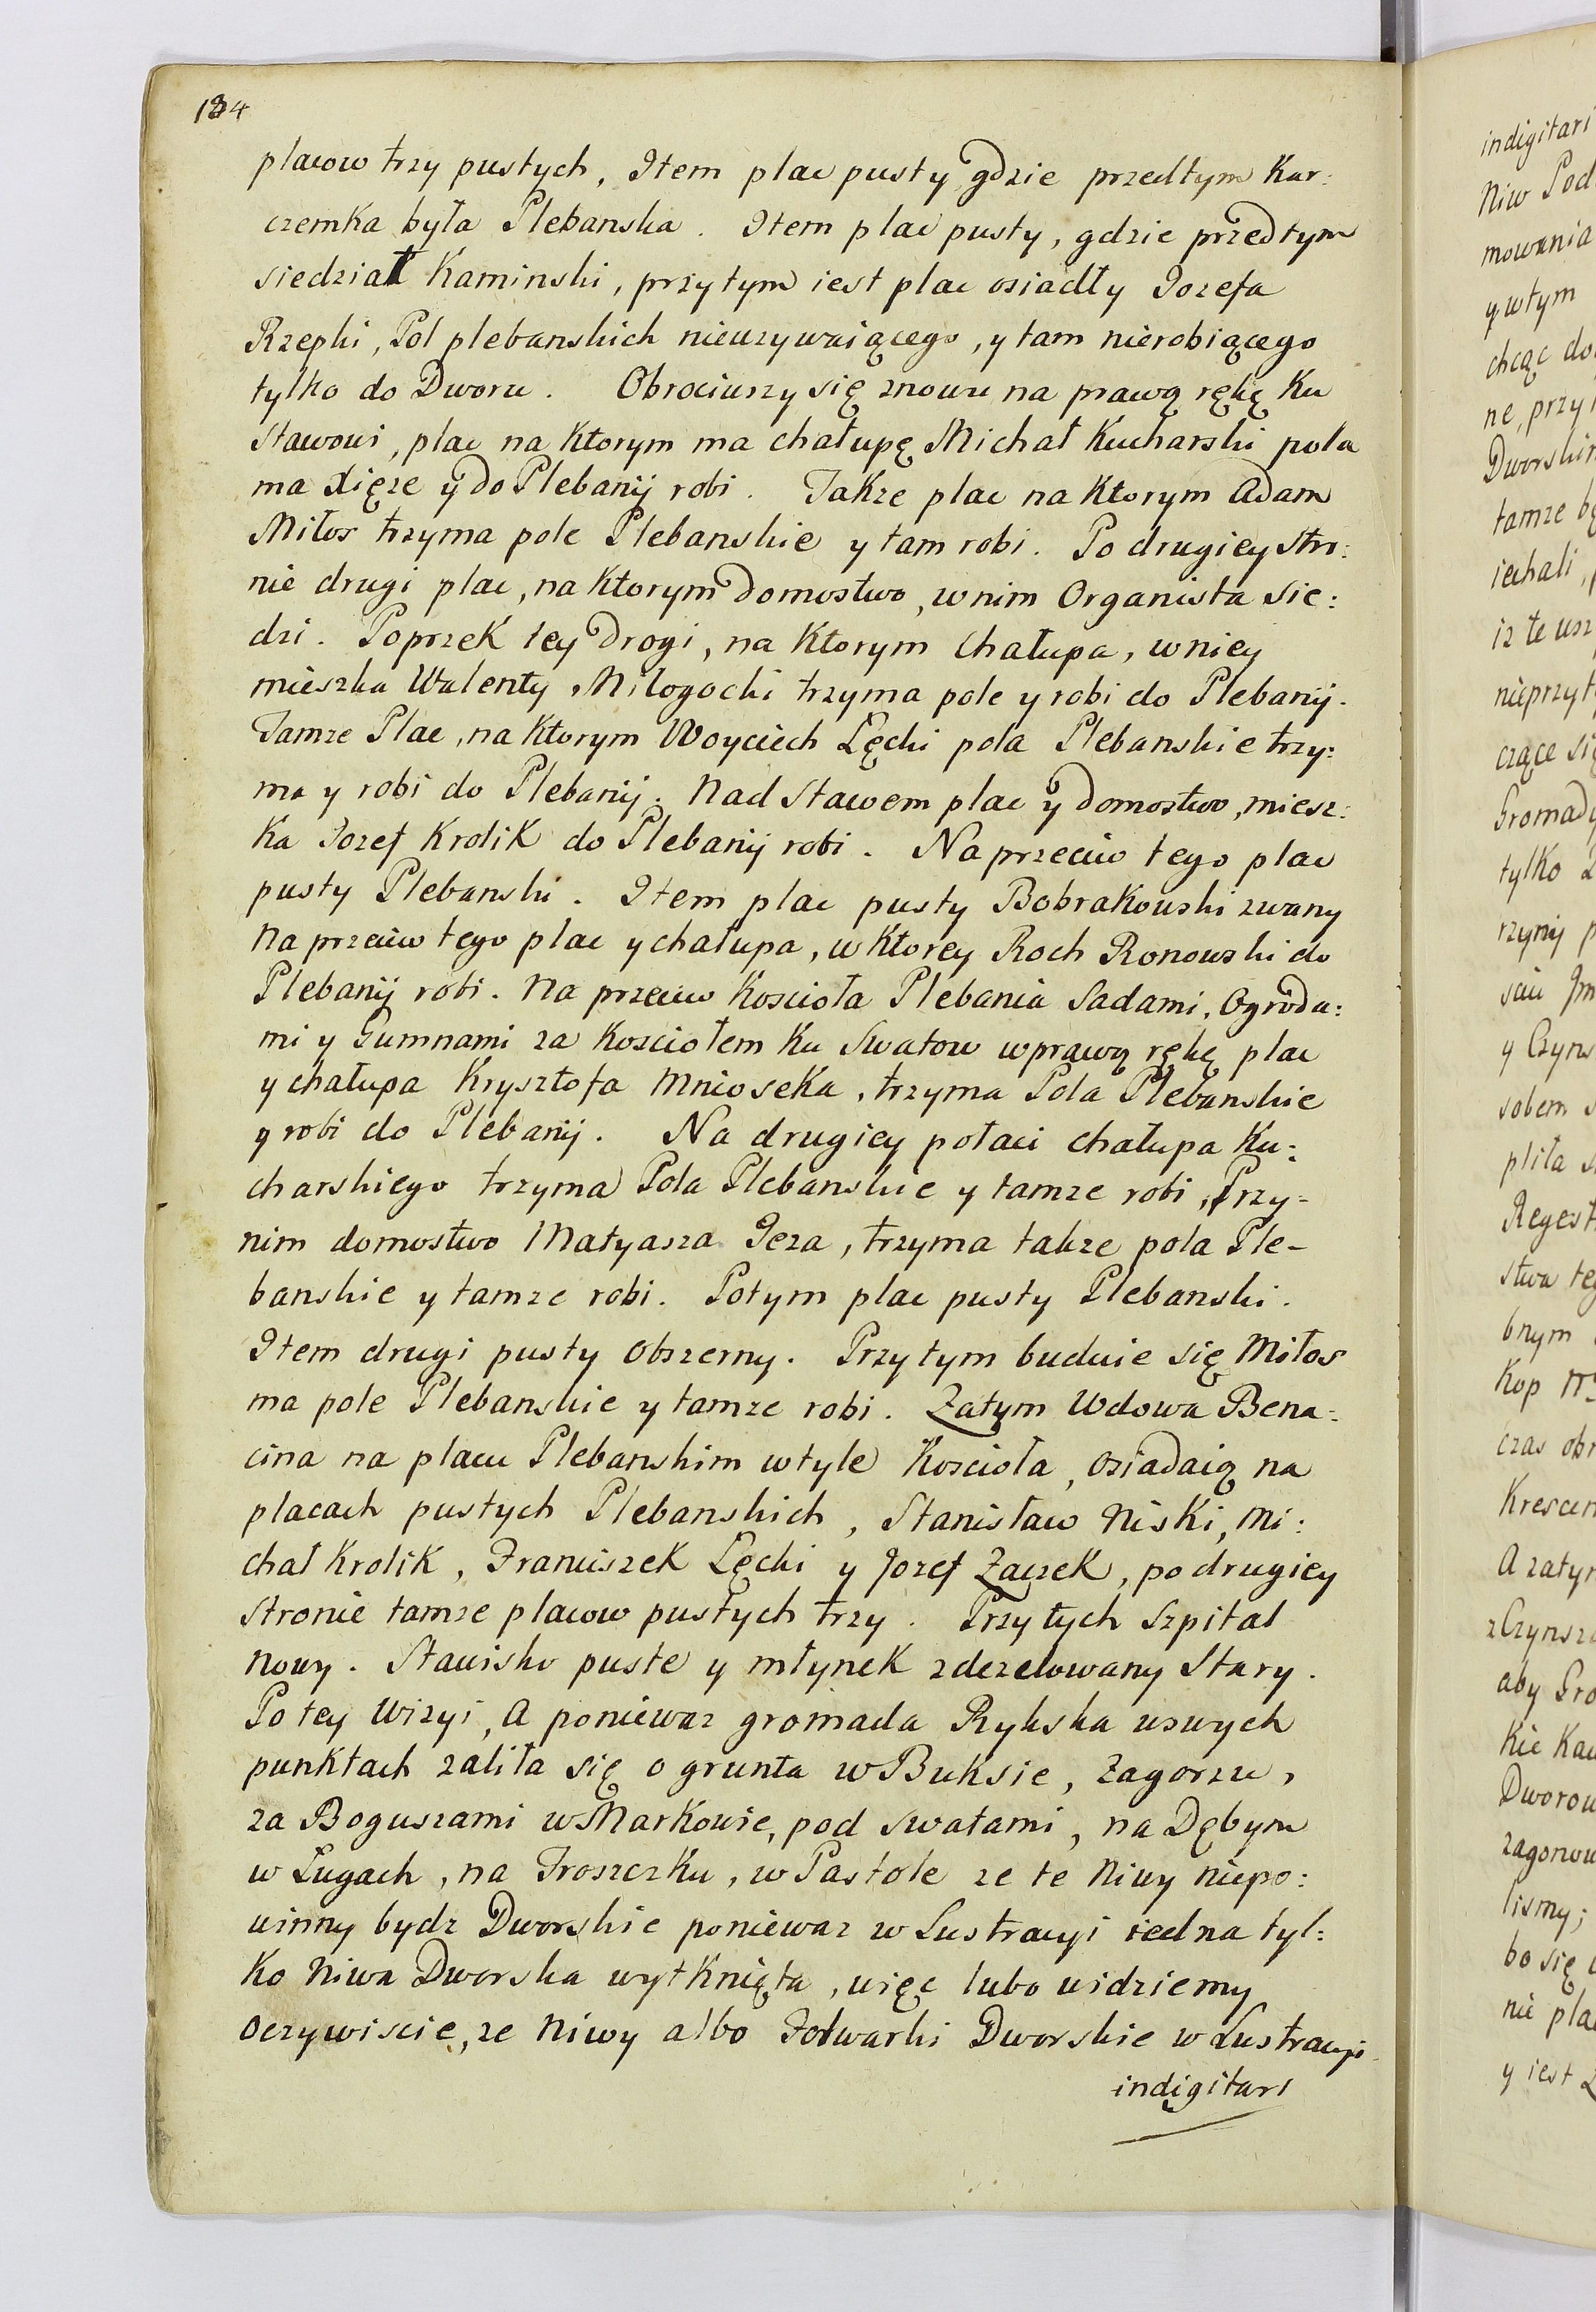 184
placow trzy pustych, Item plac pusty gdzie przedtym Kar:
czemka była Plebanska. Item plac pusty, gdzie przedtym
siedział Kaminski, przytym iest plac osiadły Iozefa
Rzepki, Pol plebanskich nieuzywaiącego, y tam nierobiącego
tylko do Dworu. Obrociwszy się znowu na prawą rękę Ku
Stawowi, plac na Ktorym ma chałupę Michał Kucharski pola
ma Xięze y do Plebanij robi. Takze plac na Ktorym Adam
Miłos trzyma pole Plebanskie y tam robi. Po drugiey stro:
nie drugi plac, na Ktorym Domostwo, w nim Organista sie:
dzi. Poprzek tey Drogi, na Ktorym Chałupa, w niey
mieszka Walenty Miłogocki trzyma pole y robi do Plebanij.
Tamze Plac, na Ktorym Woyciech Lęcki pola Plebanskie trzy:
ma y robi do Plebanij. Nad Stawem plac y domostwo, miesz:
Ka Iozef Krolik do Plebanij robi. Na przeciw tego plac
pusty Plebanski. Item plac pusty Bobrakowski zwany
Na przeciw tego plac y chałupa, w Ktorey Roch Ronowski do
Plebanij robi. Na przeciw Koscioła Plebania Sadami, Ogroda:
mi y Gumnami za Kosciołem Ku Swatow w prawą rękę plac
y chałupa Krysztofa Mnioseka, trzyma Pola Plebanskie
y robi do Plebanij. Na drugiey połaci chałupa Ku:
charskiego trzyma Pola Plebanskie y tamze robi, Przy-
nim domostwo Matyasza Ieza, trzyma takze pola Ple-
banskie y tamze robi. Potym plac pusty Plebanski.
Item drugi pusty Obszerny. Przytym buduie się Miłos
ma pole Plebanskie y tamze robi. Zatym Wdowa Bena:
cina na placu Plebanskim w tyle Kosciola, Osiadaią na
placach pustych Plebanskich, Stanisław Niski, Mi:
chał Krolik, Franciszek Lęcki y Jozef Zaczek, po drugiey
stronie tamze placow pustych trzy. Przytych Szpital
Nowy. Stawisko puste y młynek zdezelowany Stary.
Po tey Wizyi, A poniewaz gromada Rykska wswych
punktach zaliła się o grunta w Buksie, Zagorzu,
za Boguszami w Markowie, pod Swatami, na Dębym
w Ługach, na Froszczku, w Pastole ze te Niwy niepo:
winny bydz Dworskie poniewaz w Lustracyi iedna tyl:
Ko Niwa Dworska wytknięta, więc lubo widziemy
Oczywiscie, ze Niwy albo Folwarki Dworskie w Lustracyi
indigitari
indigitari
Niw Pod
mowania
y wtym
chcąc do
ne, przy
tamze
iechali
iz te
tylko
y Czyns
sobem
Kop
czas
A zatym
aby Gro
Kie
lismy;
bo się
nie
y iest